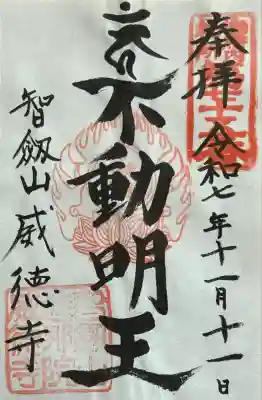 奉拝 令和七年十一月十一日
不動明王
智剱山威徳寺